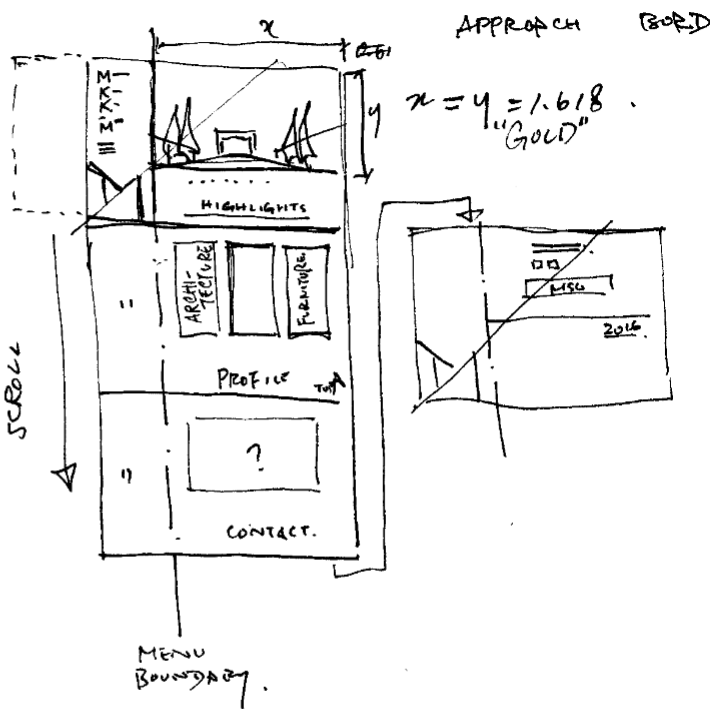 APPROACH BORD
x
y
x = y = 1.618.
"GOLD"
HIGHLIGHTS
ARCHI-
TECTURE
FURNITURE
PROFILE
SCROLL
?
CONTACT.
MENU
BOUNDARY.
2016